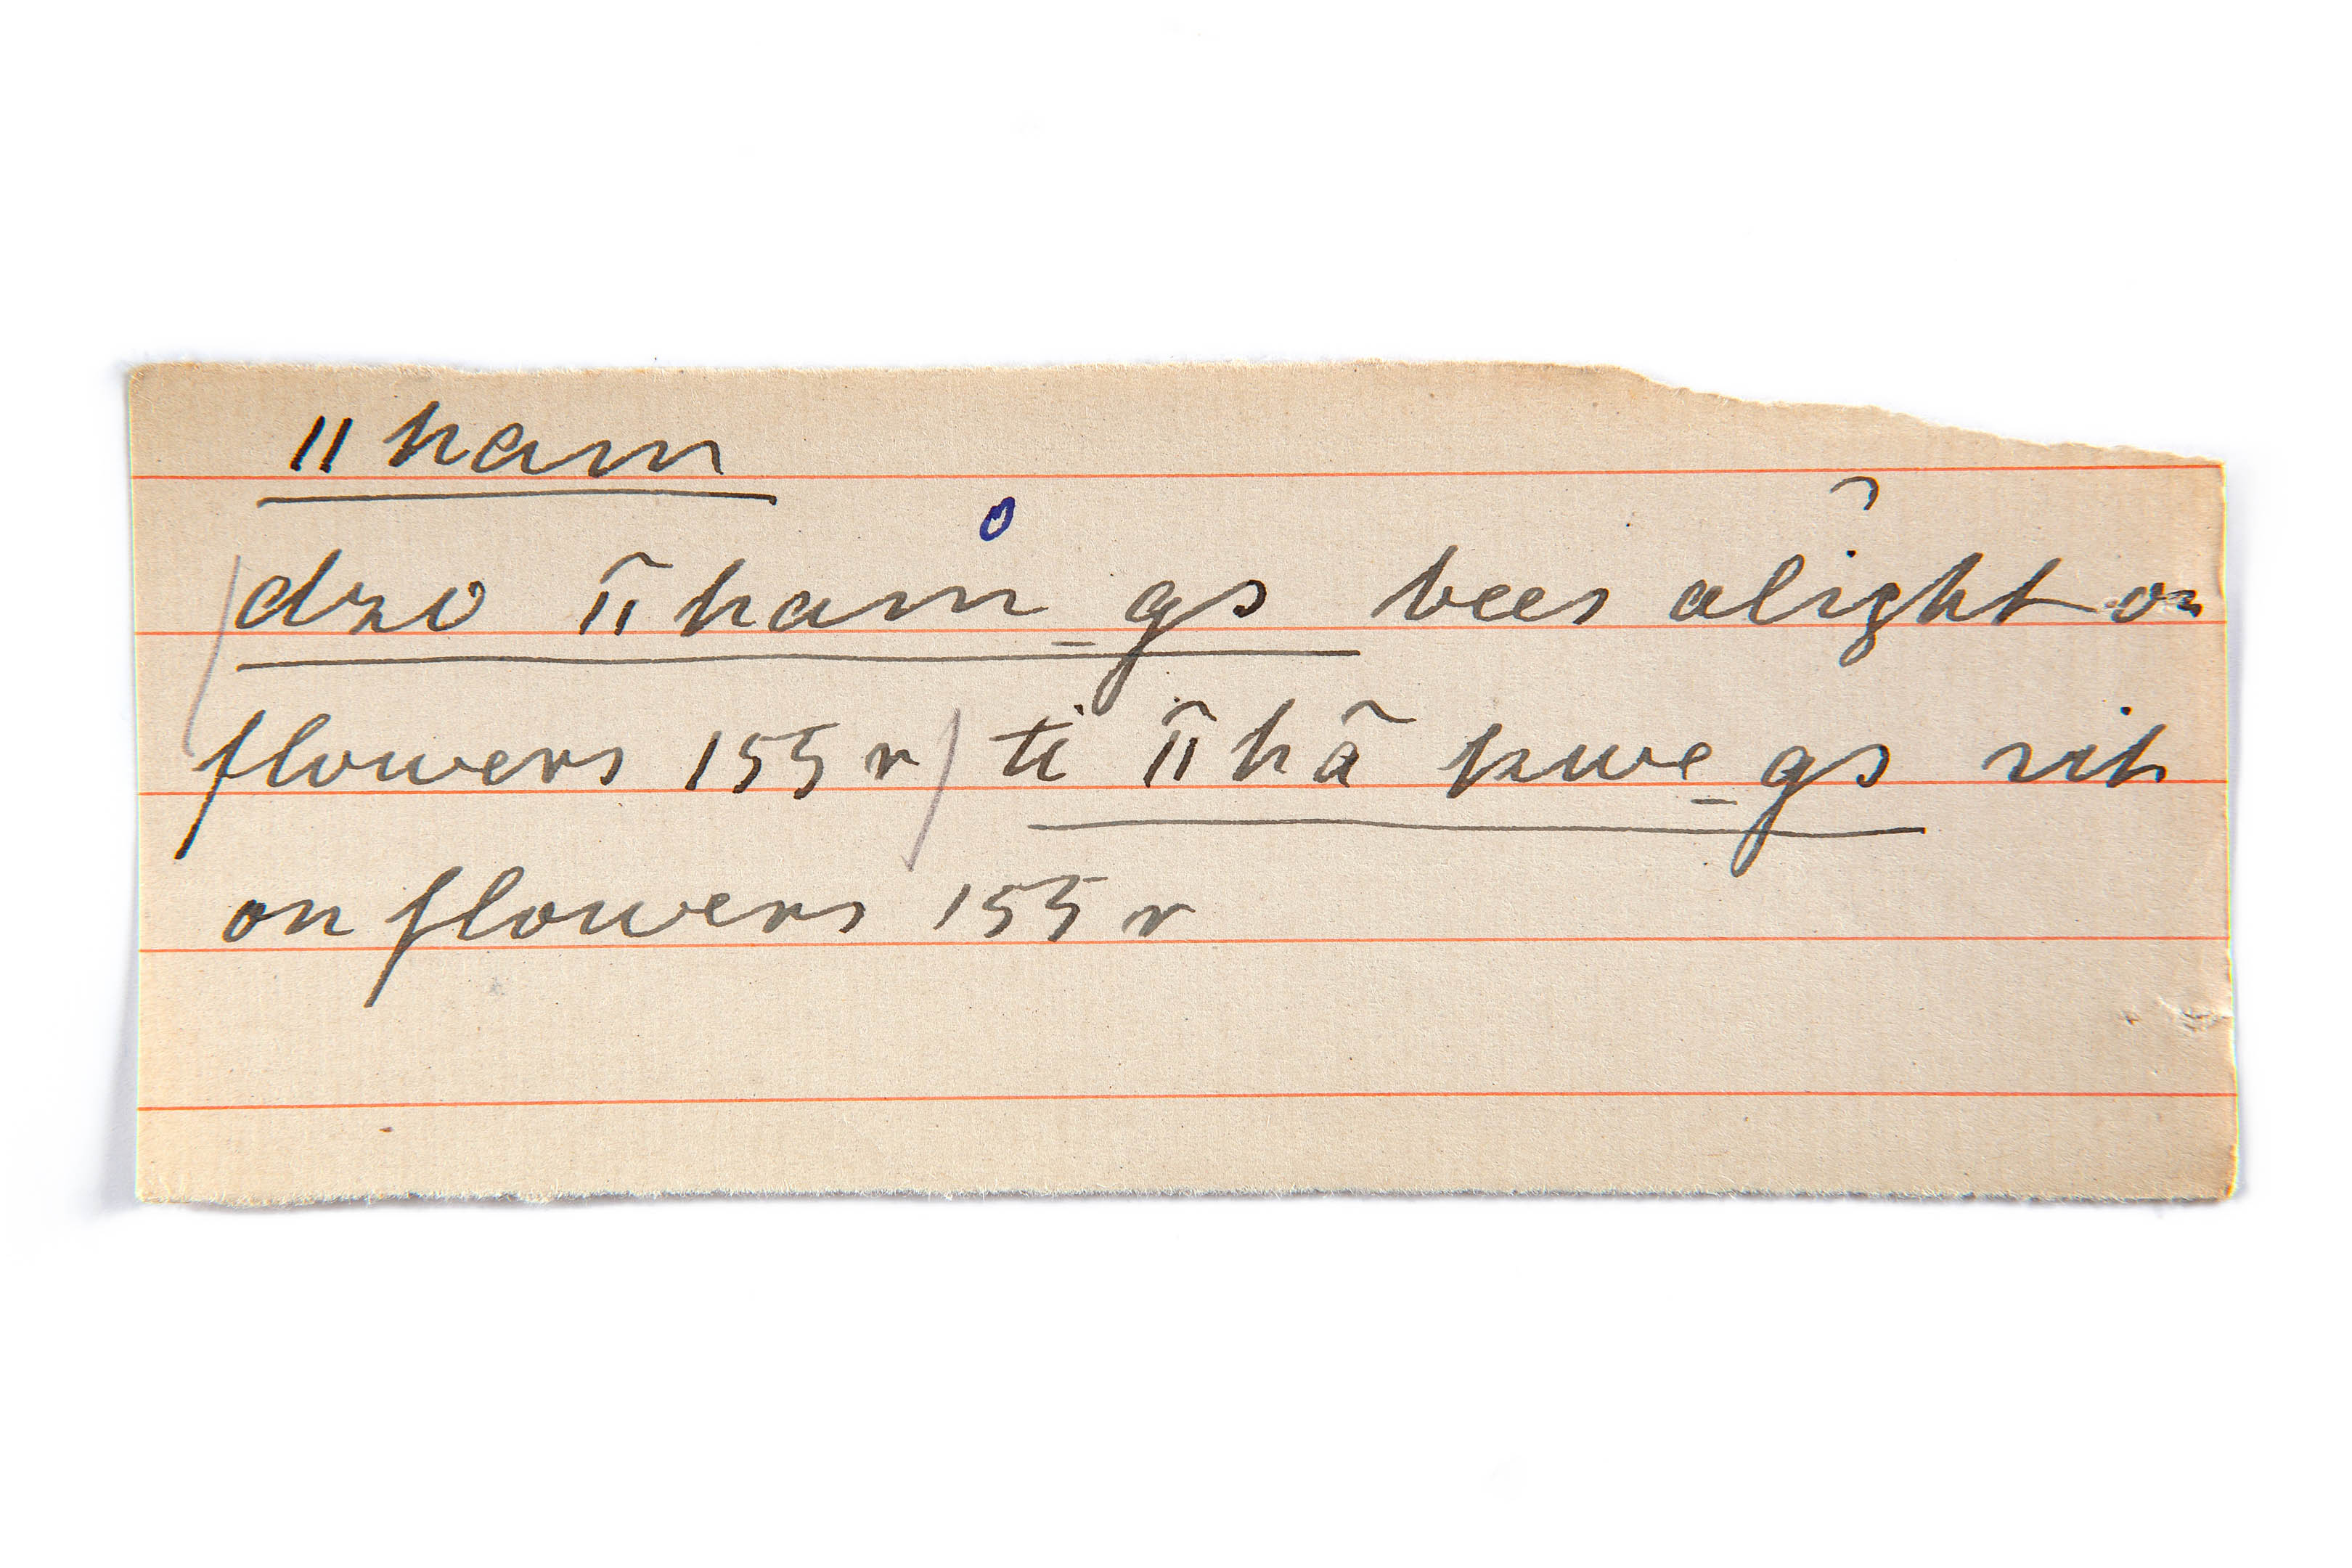 ǁham
dzo ǁ̄ham̊_gs bees alight on
flowers 155 r / ti ǁ̄hã kwe_gs sit
on flowers 155 r